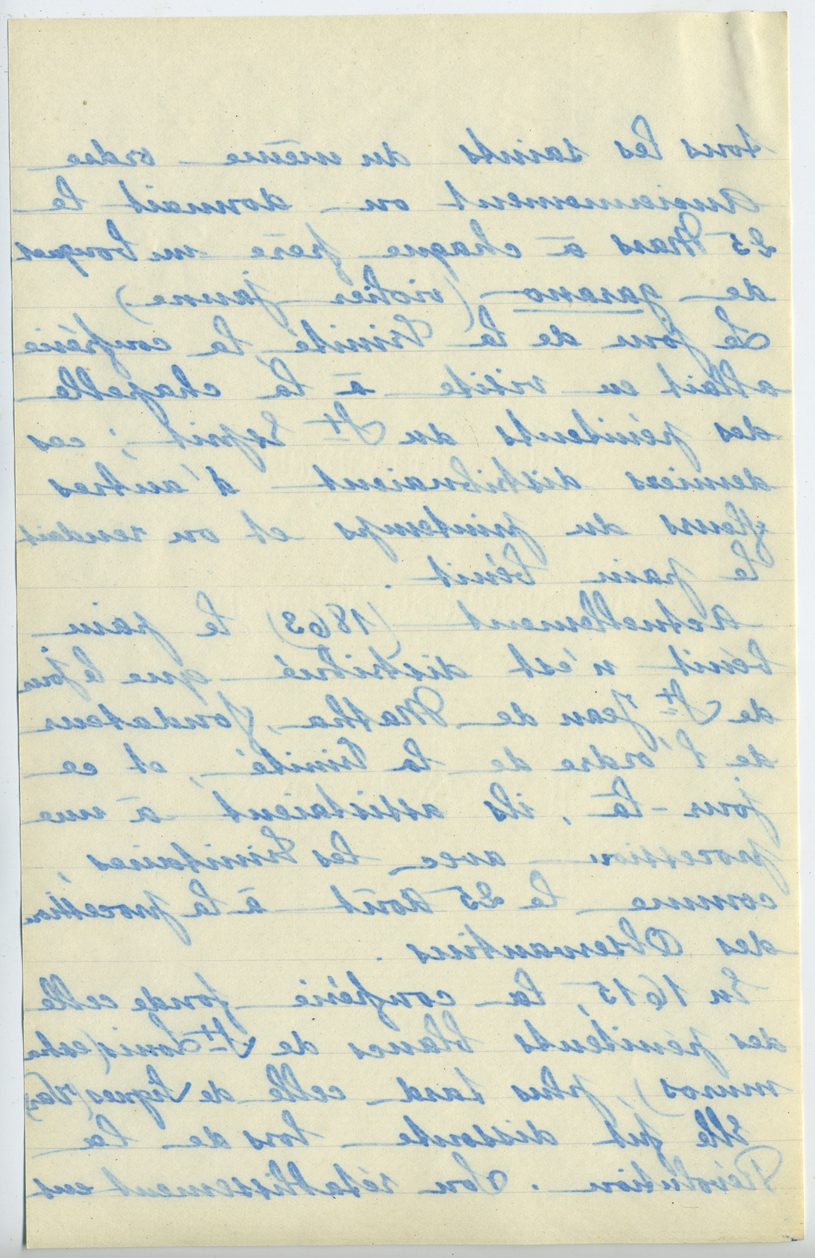 tous les saints du même ordre
Anciennement on donnait le
25 Mars à chaque frère un bouquet
de garano (violier jaune)
Le jour de la Trinité la confrérie
allait en visite à la chapelle
des pénitents du St Esprit ; ces
derniers distribuaient d'autres
fleurs du printemps et on rendait
le pain bénit.
Actuellement (1863) le pain
bénit n'est distribué que le jour
de St Jean de Matha, fondateur
de l'ordre de la Trinité, et ce
jour-là, ils assistaient à une
procession avec les Trinitaires,
comme le 25 Août à la procession
des Observantins.
En 1615, la confrérie fonde celle
des pénitents blancs de St Louis (extra
muros), plus tard celle de Signes (Var)
Elle fut dissoute lors de la
Révolution. Son rétablissement eut